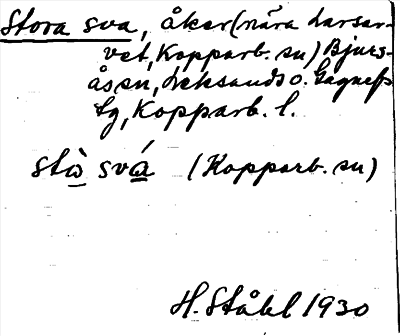 Stora sva, åker (nära Larsar-
vet, Kopparb. sn) Bjurs-
ås sn, Leksands o. Gagnefs
tg, Kopparb. l.
stò̲ svá̲ (Kopparb. sn)
H. Ståhl 1930